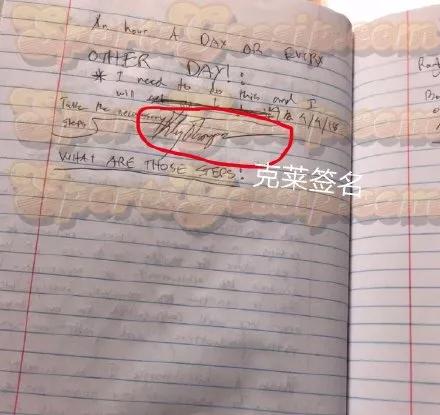 An hour A DAY OR EVERY
OTHER DAY!
* I need to do this and I
will
Take the necessary
4/4/18
steps
WHAT ARE THOSE STEPS?
克莱签名
SportsGossip.com